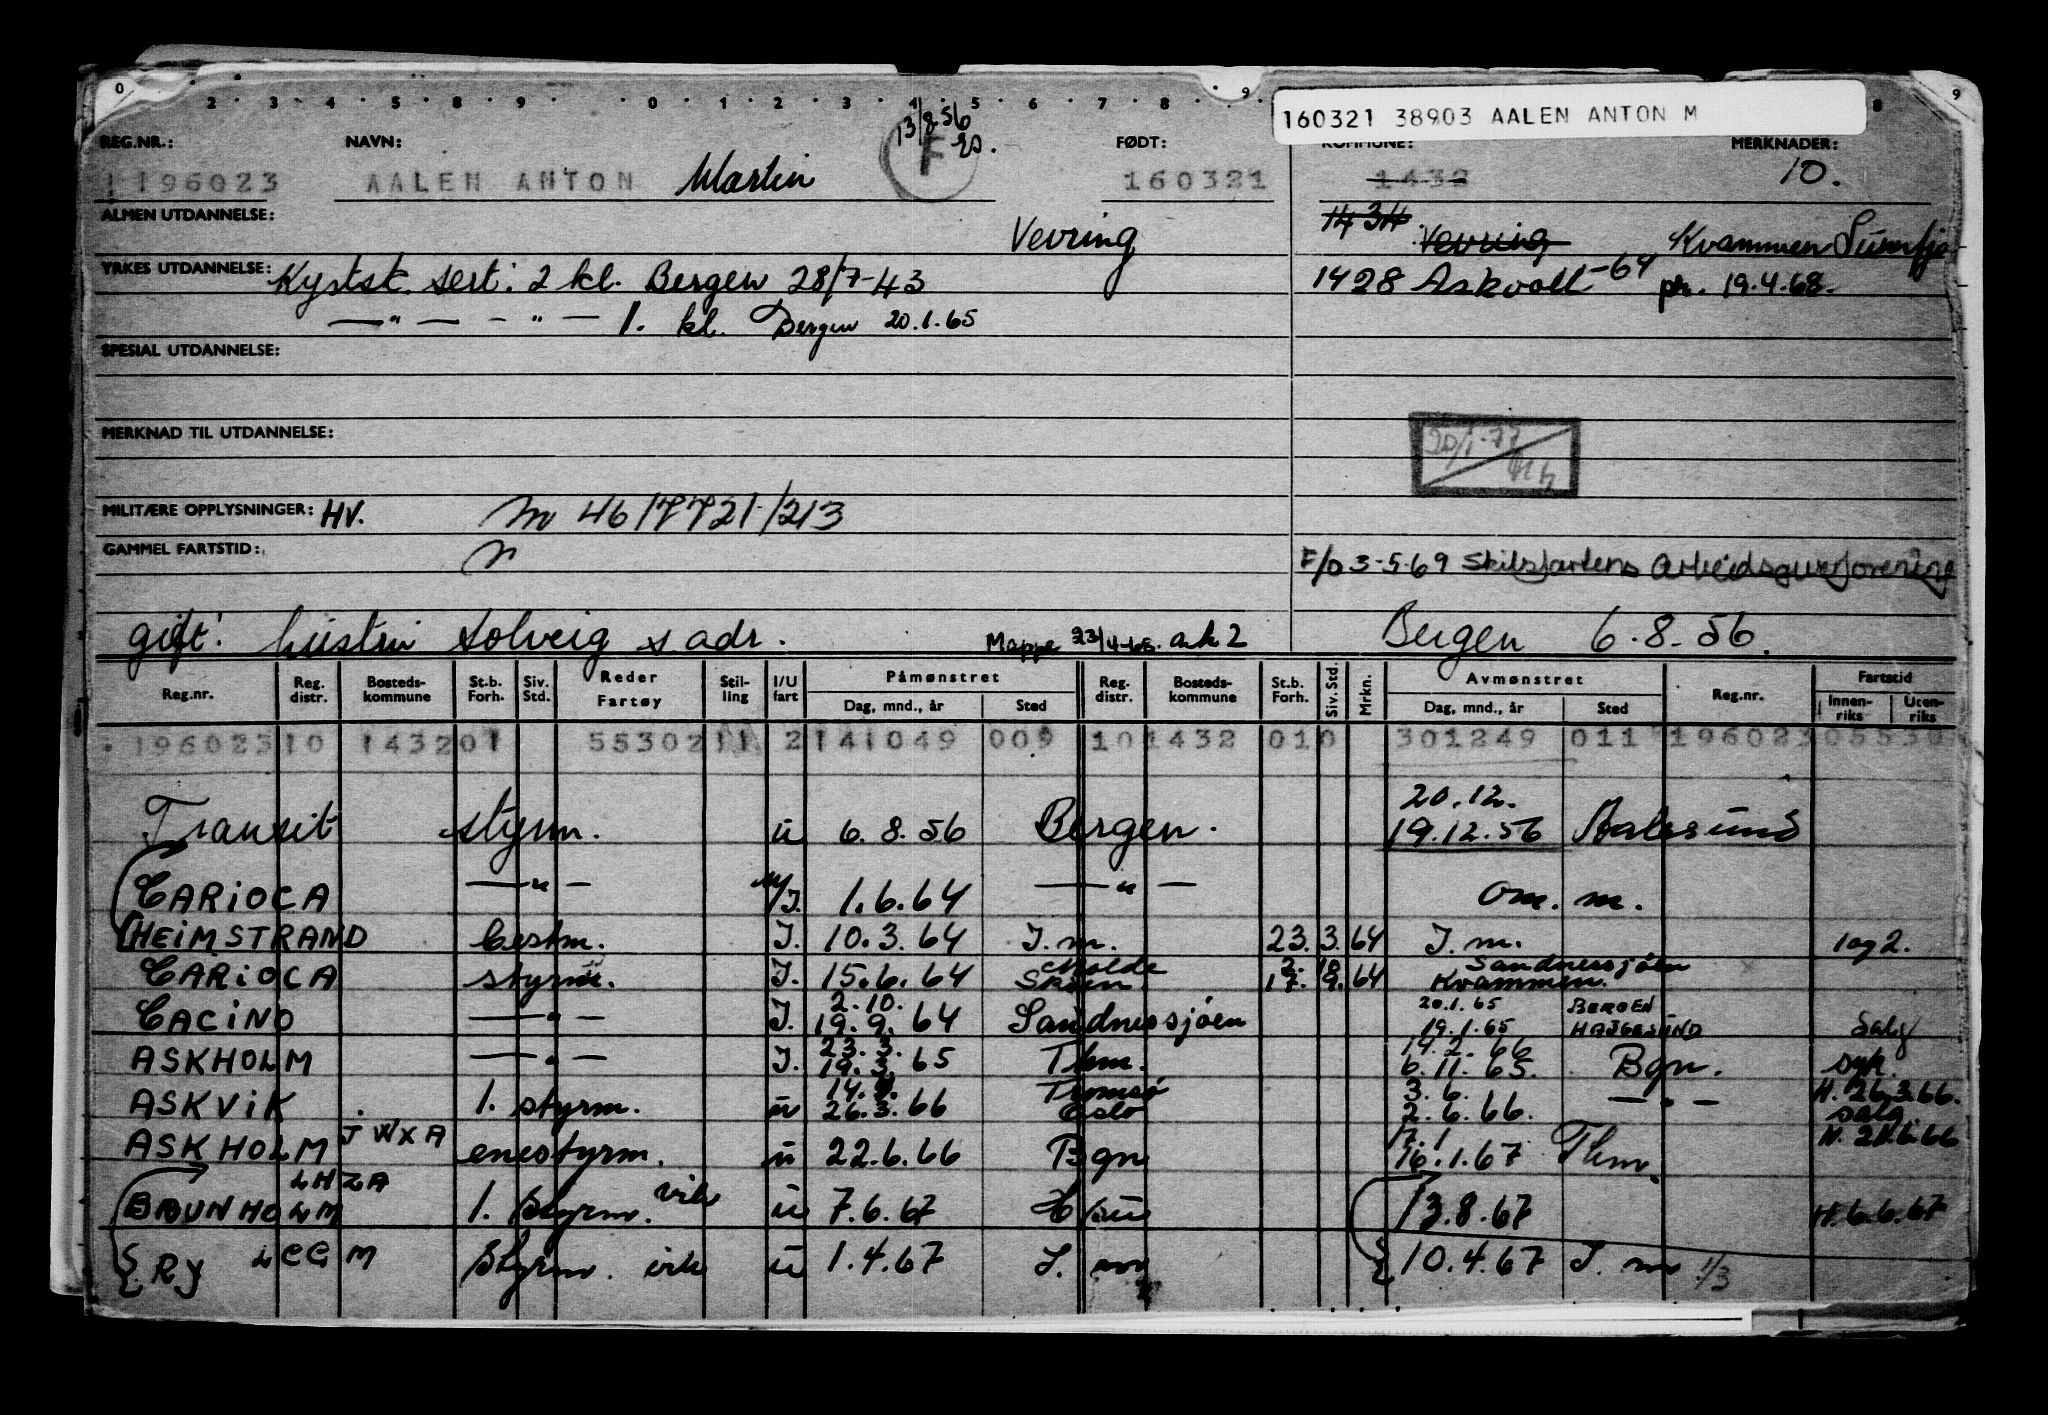 0 2 3 4 5 8 9 0 1 2 3 4 5 6 7 8 9 8 9
160321 38903 AALEN ANTON M
13/8.56
F
REG.NR.: NAVN: FØDT: KOMMUNE: MERKNADER:
1196023 AALEN ANTON Martin 160321 1432 10.
ALMEN UTDANNELSE: Vevring 1434 Vevring Kvammen Sunnfj
YRKES UTDANNELSE: Kystsk. sert: 2 kl. Bergen 28/7-43 1428 Askvoll -64 pr. 19.4.68.
— " — - " — 1. kl. Bergen 20.1.65
SPESIAL UTDANNELSE:
MERKNAD TIL UTDANNELSE:
20/1-77
MILITÆRE OPPLYSNINGER: HV. m 46/7721/213
GAMMEL FARTSTID: n
F/O 3-5-69 Skipsfartens Arbeidsgiverforening
gift: hustru Solveig s adr. Mappe 23/4-65. ark 2 Bergen 6.8.56.
Reg.nr. Reg. distr. Bosteds-kommune St.b. Forh. Siv. Std. Reder Fartøy Stil-ling I/U fart Påmønstret Dag, mnd., år Sted Reg. distr. Bosteds-kommune St.b. Forh. Siv. Std. Mrkn. Avmønstret Dag, mnd., år Sted Reg.nr. Fartstid Innen-riks Uten-riks
196023 10 1432 01 55302 11 2 141049 009 10 1432 01 0 301249 011 196023
20.12.
Transit styrm. u 6.8.56 Bergen. 19.12.56 Aalesund
CARIOCA — " — 1.6.64 — " — Om. m.
HEIMSTRAND bestm. I. 10.3.64 I. m. 23. 3. 64 I. m. 1 og 2.
Molde 2. 10 Sandnessjøen
CARIOCA styrm. I. 15.6.64 17. 9. 64 Kvammen.
2.10. 20.1.65 BERGEN
CACINO — " — I. 19.9.64 Sandnessjøen 19.1.65 HAUGESUND Salg
23.3. 14.2.66
ASKHOLM — " — I. 19.3.65 Thm. 6.11.65. Bgn. syk.
Tromsø 3.6. H. 26.3.66.
ASKVIK 1. styrm. u 26.3.66 Oslo 2.6.66. — " — salg
JWXA 17.1
ASKHOLM enestyrm. u 22.6.66 Bgn 16.1.67 Thm.
LHZA
BRUNHOLM 1. styrm. vik u 7.6.67 13.8.67 H. 6.6.67
RY LCGM Styrm. vik u 1.4.67 I. m 10.4.67 I. m 1/3